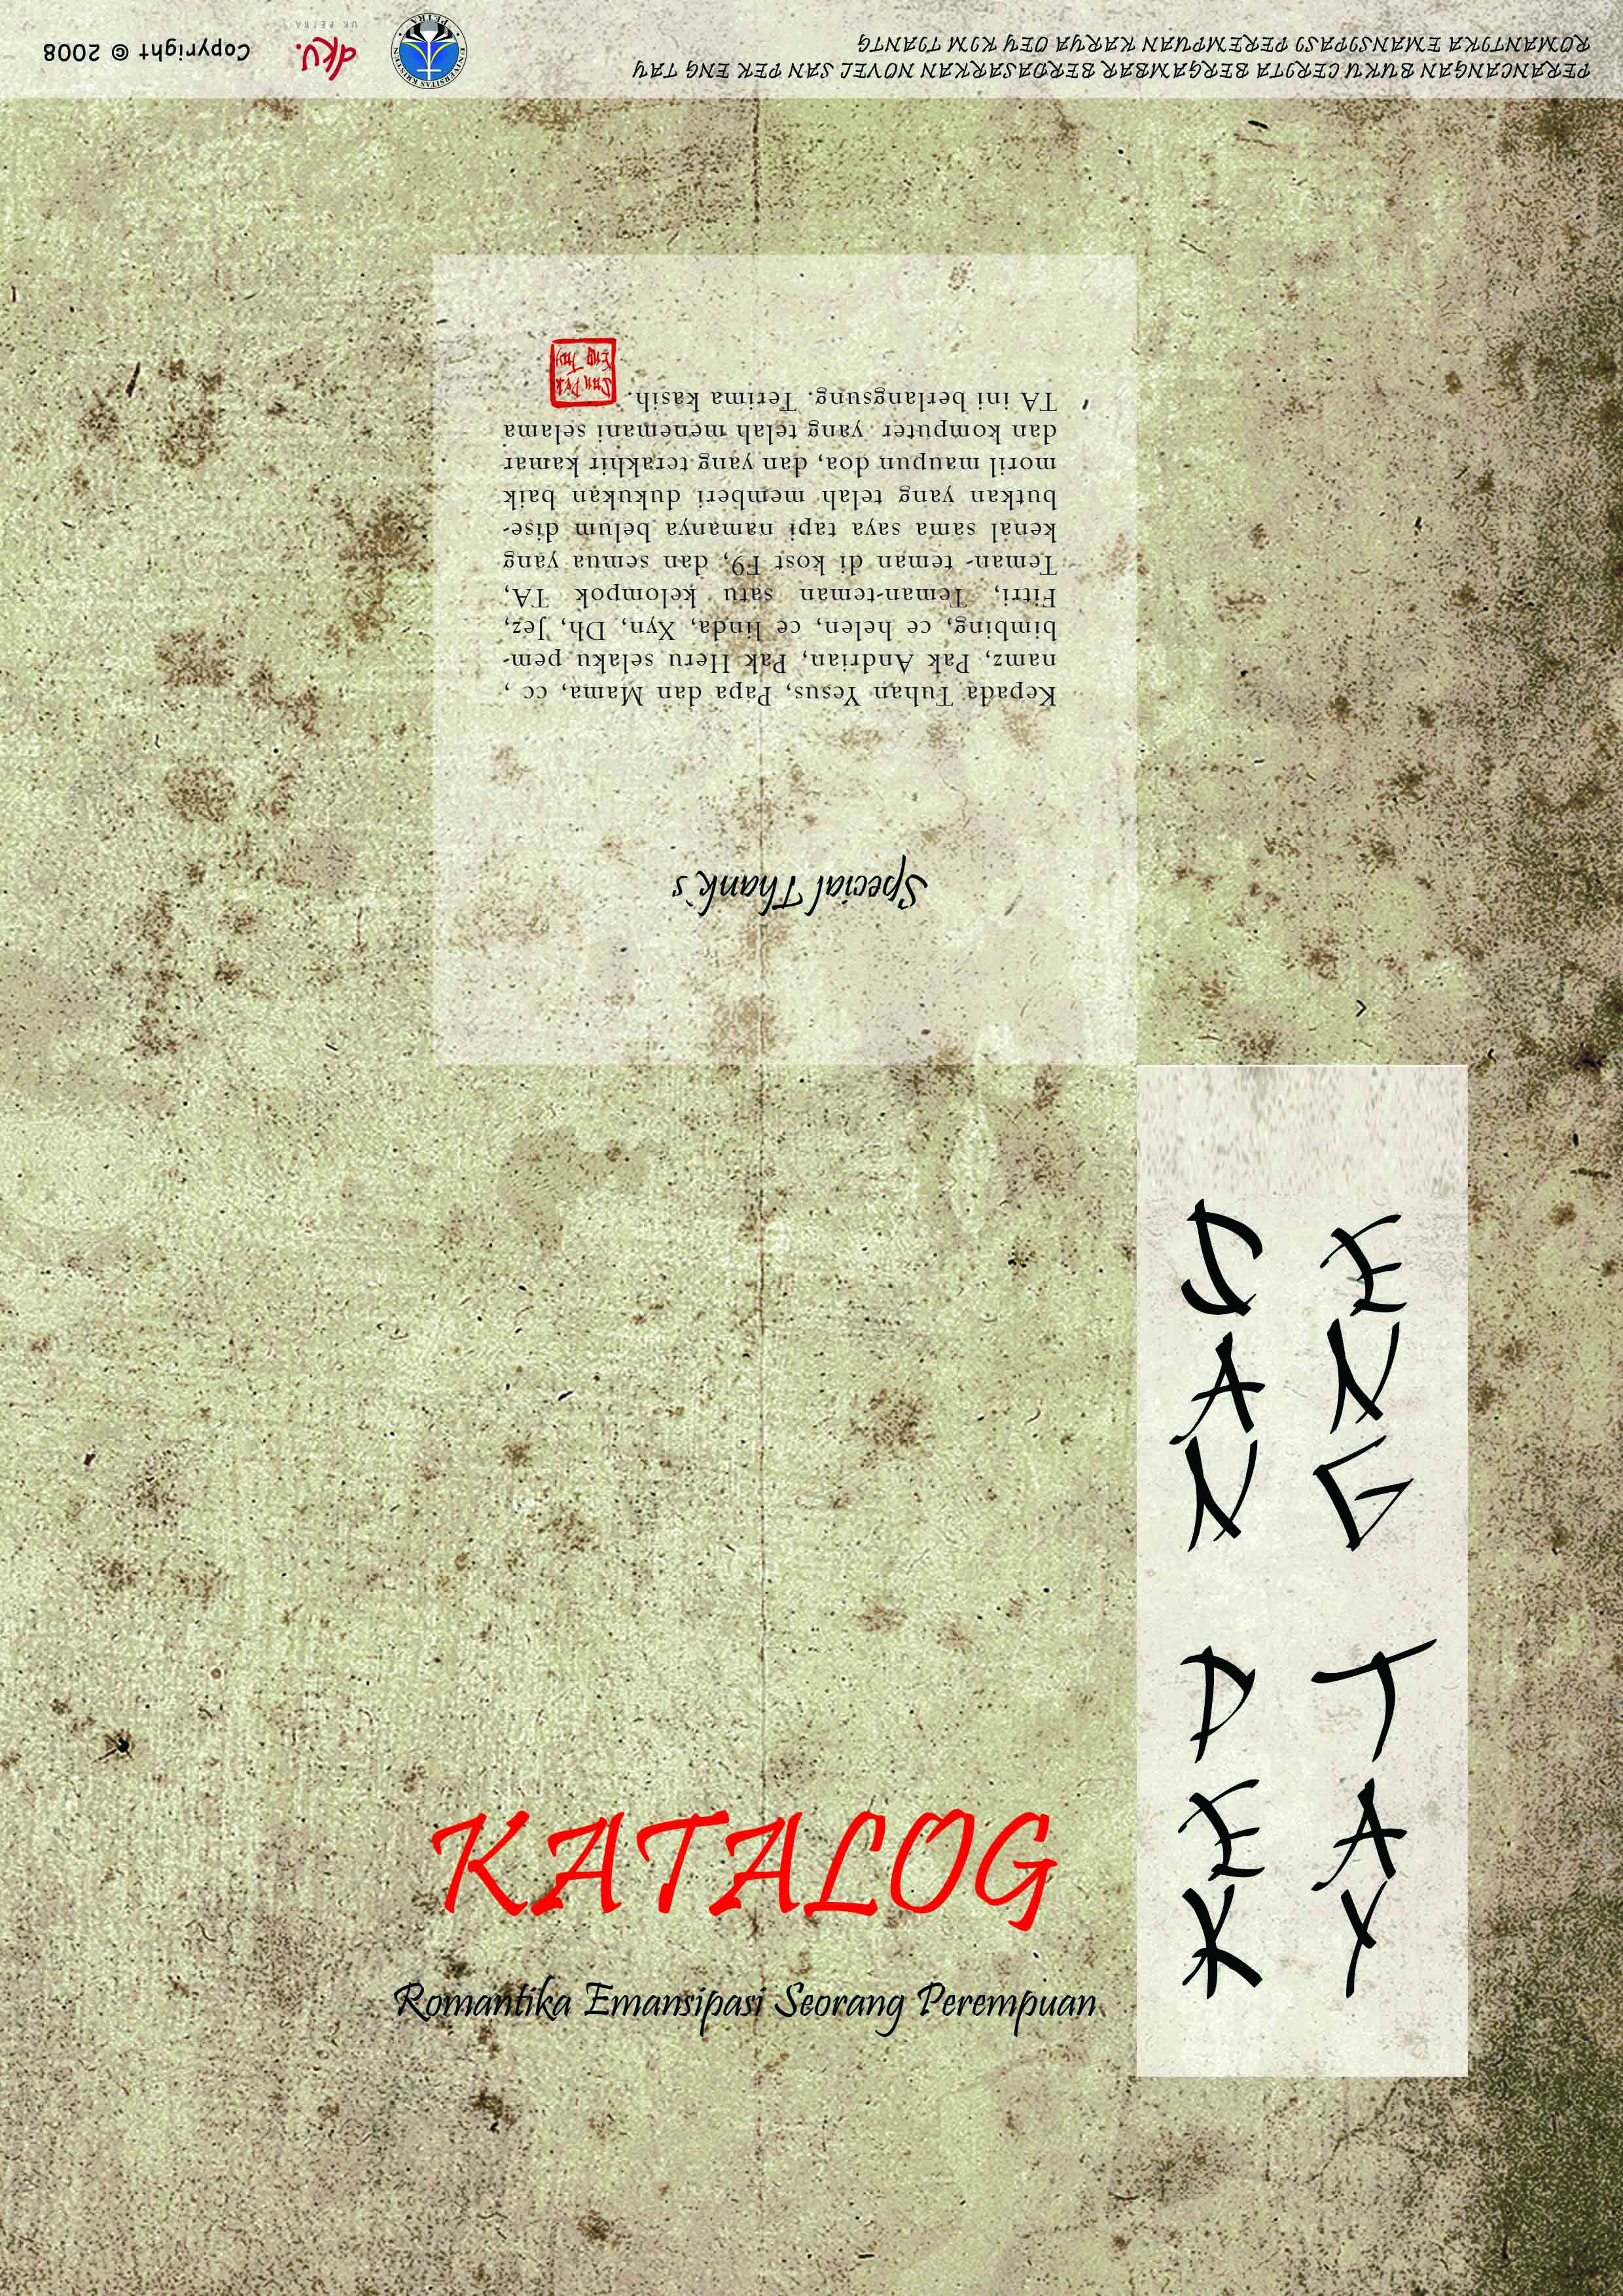 SAN PEK
ENG TAY
KATALOG
Romantika Emansipasi Seorang Perempuan
Special Thank's
Kepada Tuhan Yesus, Papa dan Mama, cc ,
namz, Pak Andrian, Pak Heru selaku pem-
bimbing, ce helen, ce linda, Xyn, Dh, Jez,
Fitri, Teman-teman satu kelompok TA,
Teman- teman di kost F9, dan semua yang
kenal sama saya tapi namanya belum dise-
butkan yang telah memberi dukukan baik
moril maupun doa, dan yang terakhir kamar
dan komputer yang telah menemani selama
TA ini berlangsung. Terima kasih.
San Pek
Eng Tay
PERANCANGAN BUKU CERITA BERGAMBAR BERDASARKAN NOVEL SAN PEK ENG TAY
ROMANTIKA EMANSIPASI PEREMPUAN KARYA OEY KOM TIANG
UNIVERSITAS KRISTEN
PETRA
dkv.
UK PETRA
Copyright © 2008